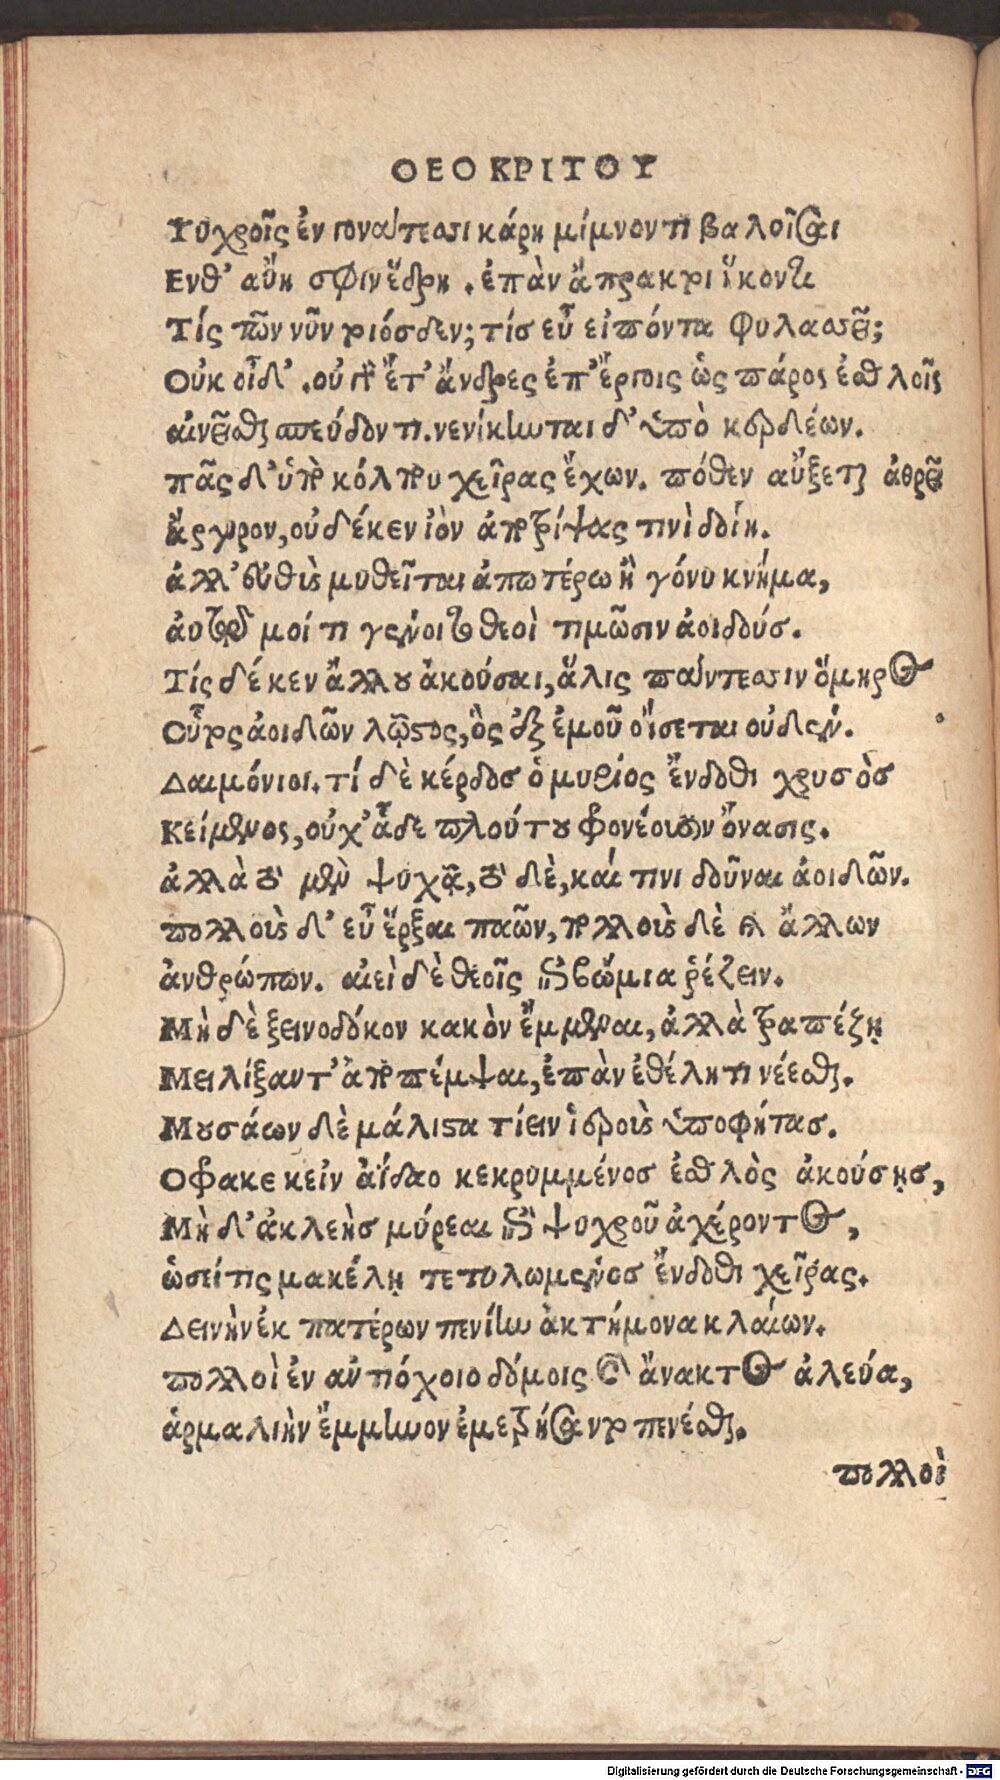 ΘΕΟΚΡΙΤΟΥ
Ψυχροῖς ἐν γονάτεσσι κάρη μίμνοντι βαλοῖσαι
Ενθ' αὔη σφιν ἕδρη . ἐπὰν ἄπρακροι ἵκονται
Τίς τῶν νῦν τοιόσδεν; τίσ εὖ εἰπόντα φυλασσει;
Οὐκ οἶδ' . οὐ γὰρ ἔτ' ἄνδρες ἐπ' ἔργοις ὡς πάρος ἐσθλοῖς
αἰνεῖσθαι σπεύδοντι. νενίκηνται δ' ὑπὸ κερδέων.
πᾶς δ' ὑπὸ κόλπου χεῖρας ἔχων. πόθεν αὔξεται ἀθρεῖ
ἄργυρον, οὐδέ κεν ἰὸν ἀποτρίψας τινὶ δοίη.
ἀλλ' εὐθὺς μυθεῖται ἀπωτέρω ἢ γόνυ κνήμα,
ἀυτῷ μοί τι γένοιτο θεοὶ τιμῶσιν ἀοιδούσ.
Τίς δέ κεν ἄλλου ἀκούσαι, ἅλις πάντεσσιν ὅμηρος
Οὗτος ἀοιδῶν λῷστος, ὃς ἐξ ἐμοῦ οἴσεται οὐδέν.
Δαιμόνιοι. τί δὲ κέρδοσ ὁ μυρίος ἔνδοθι χρυσὸσ
Κείμενος, οὐχ' ἇδε πλούτου φρονέουσιν ὄνασις.
ἀλλὰ τὸ μὲν ψυχᾷ, τὸ δὲ, καί τινι δοῦναι ἀοιδῶν.
πολλοὺς δ' εὖ ἕρξαι παῶν, πολλοὺς δὲ καὶ ἄλλων
ἀνθρώπων. αἰεὶ δὲ θεοῖς ἐπιβώμια ῥέζειν.
Μὴ δὲ ξεινοδόκον κακὸν ἔμμεναι, ἀλλὰ τραπέζῃ
Μειλίξαντ' ἀποπέμψαι, ἐπὰν ἐθέλητι νέεσθαι.
Μουσάων δὲ μάλιστα τίειν ἱεροὺς ὑποφήτασ.
Οφρακε κεἰν ἀΐδαο κεκρυμμένοσ ἐσθλὸς ἀκούσῃσ,
Μὴ δ' ἀκλεὴσ μύρεαι ἐπὶ ψυχροῦ ἀχέροντος,
ὡσείτις μακέλῃ τετολωμένοσ ἔνδοθι χεῖρας.
Δεινὴν ἐκ πατέρων πενίην ἀκτήμονα κλαίων.
πολλοὶ ἐν αὐτιόχοιο δόμοις καὶ ἄνακτος ἀλεύα,
ἁρμαλιὴν ἔμμηνον ἐμετρήσαντο πενέσθαι.
πολλοὶ
Digitalisierung gefördert durch die Deutsche Forschungsgemeinschaft - DFG